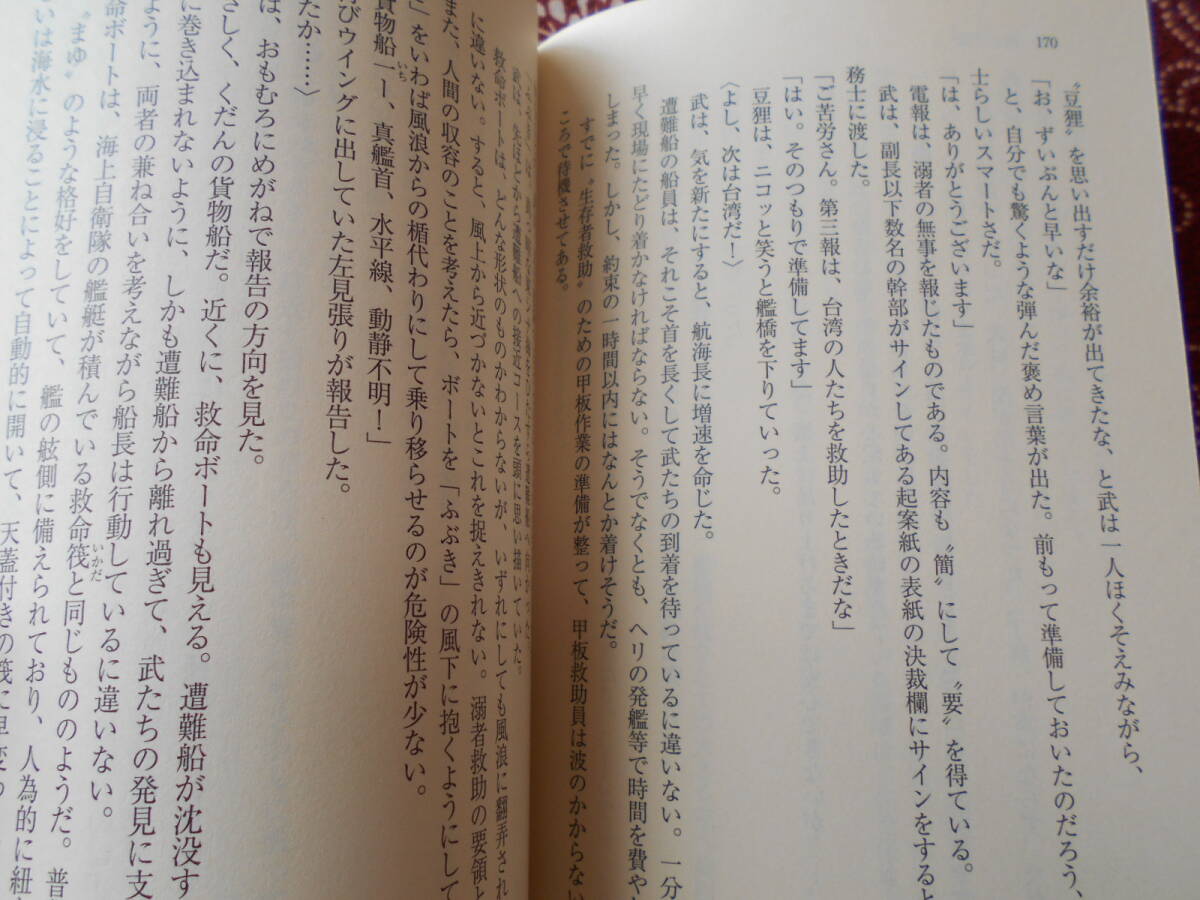 170
〝豆狸〟を思い出すだけ余裕が出てきたな、と武は一人ほくそえみながら、
「お、ずいぶんと早いな」
と、自分でも驚くような弾んだ褒め言葉が出た。前もって準備しておいたのだろう、
士らしいスマートさだ。
「は、ありがとうございます」
電報は、溺者の無事を報じたものである。内容も〝簡〟にして〝要〟を得ている。
武は、副長以下数名の幹部がサインしてある起案紙の表紙の決裁欄にサインをすると
務士に渡した。
「ご苦労さん。第三報は、台湾の人たちを救助したときだな」
「はい。そのつもりで準備してます」
豆狸は、ニコッと笑うと艦橋を下りていった。
〈よし、次は台湾だ!〉
武は、気を新たにすると、航海長に増速を命じた。
遭難船の船員は、それこそ首を長くして武たちの到着を待っているに違いない。一分
早く現場にたどり着かなければならない。そうでなくとも、ヘリの発艦等で時間を費や
しまった。しかし、約束の一時間以内にはなんとか着けそうだ。
すでに〝生存者救助〟のための甲板作業の準備が整って、甲板救助員は波のかからない
ころで待機させてある。
先ほどから遭難船への接近コースを頭に思い描いていた。
救命ボートは、どんな形状のものかわからないが、いずれにしても風浪に翻弄され
に違いない。すると、風上から近づかないとこれを捉えきれない。溺者救助の要領と
また、人間の収容のことを考えたら、ボートを「ふぶき」の風下に抱くようにして
」をいわば風浪からの楯代わりにして乗り移らせるのが危険性が少ない。
貨物船一ー、真艦首、水平線、動静不明!」
びウイングに出していた左見張りが報告した。
たか……〉
は、おもむろにめがねで報告の方向を見た。
さしく、くだんの貨物船だ。近くに、救命ボートも見える。遭難船が沈没す
に巻き込まれないように、しかも遭難船から離れ過ぎて、武たちの発見に支
ように、両者の兼ね合いを考えながら船長は行動しているに違いない。
命ボートは、海上自衛隊の艦艇が積んでいる救命筏と同じもののようだ。普
〝まゆ〟のような格好をしていて、艦の舷側に備えられており、人為的に紐
いは海水に浸ることによって自動的に開いて、天蓋付きの筏に早変わ